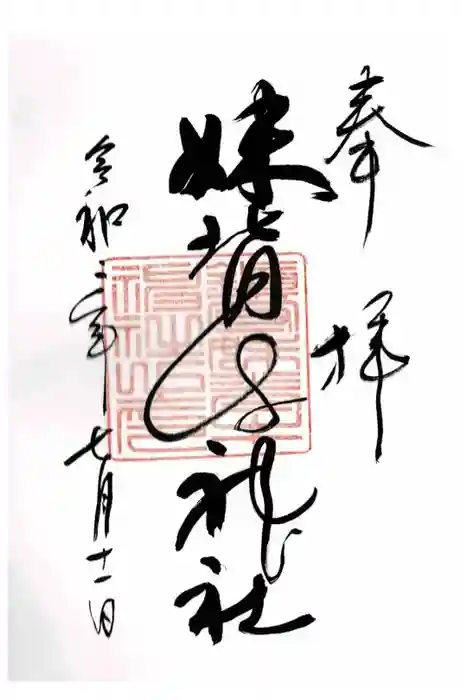 奉拝
妹背山神社
令和二年七月十一日